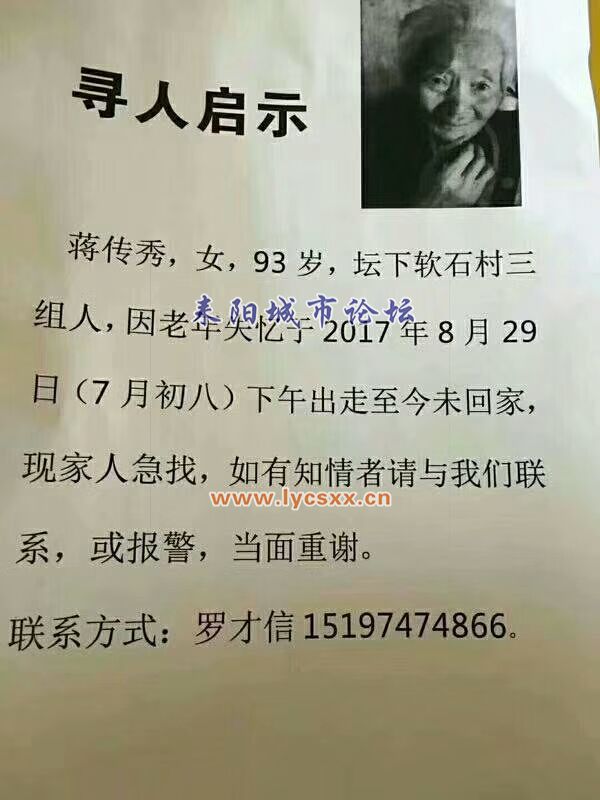 寻人启示
蒋传秀，女，93岁，坛下软石村三
组人，因老年失忆于2017年8月29
耒阳城市论坛
日（7月初八）下午出走至今未回家，
现家人急找，如有知情者请与我们联
www.lycsxx.cn
系，或报警，当面重谢。
联系方式：罗才信15197474866。